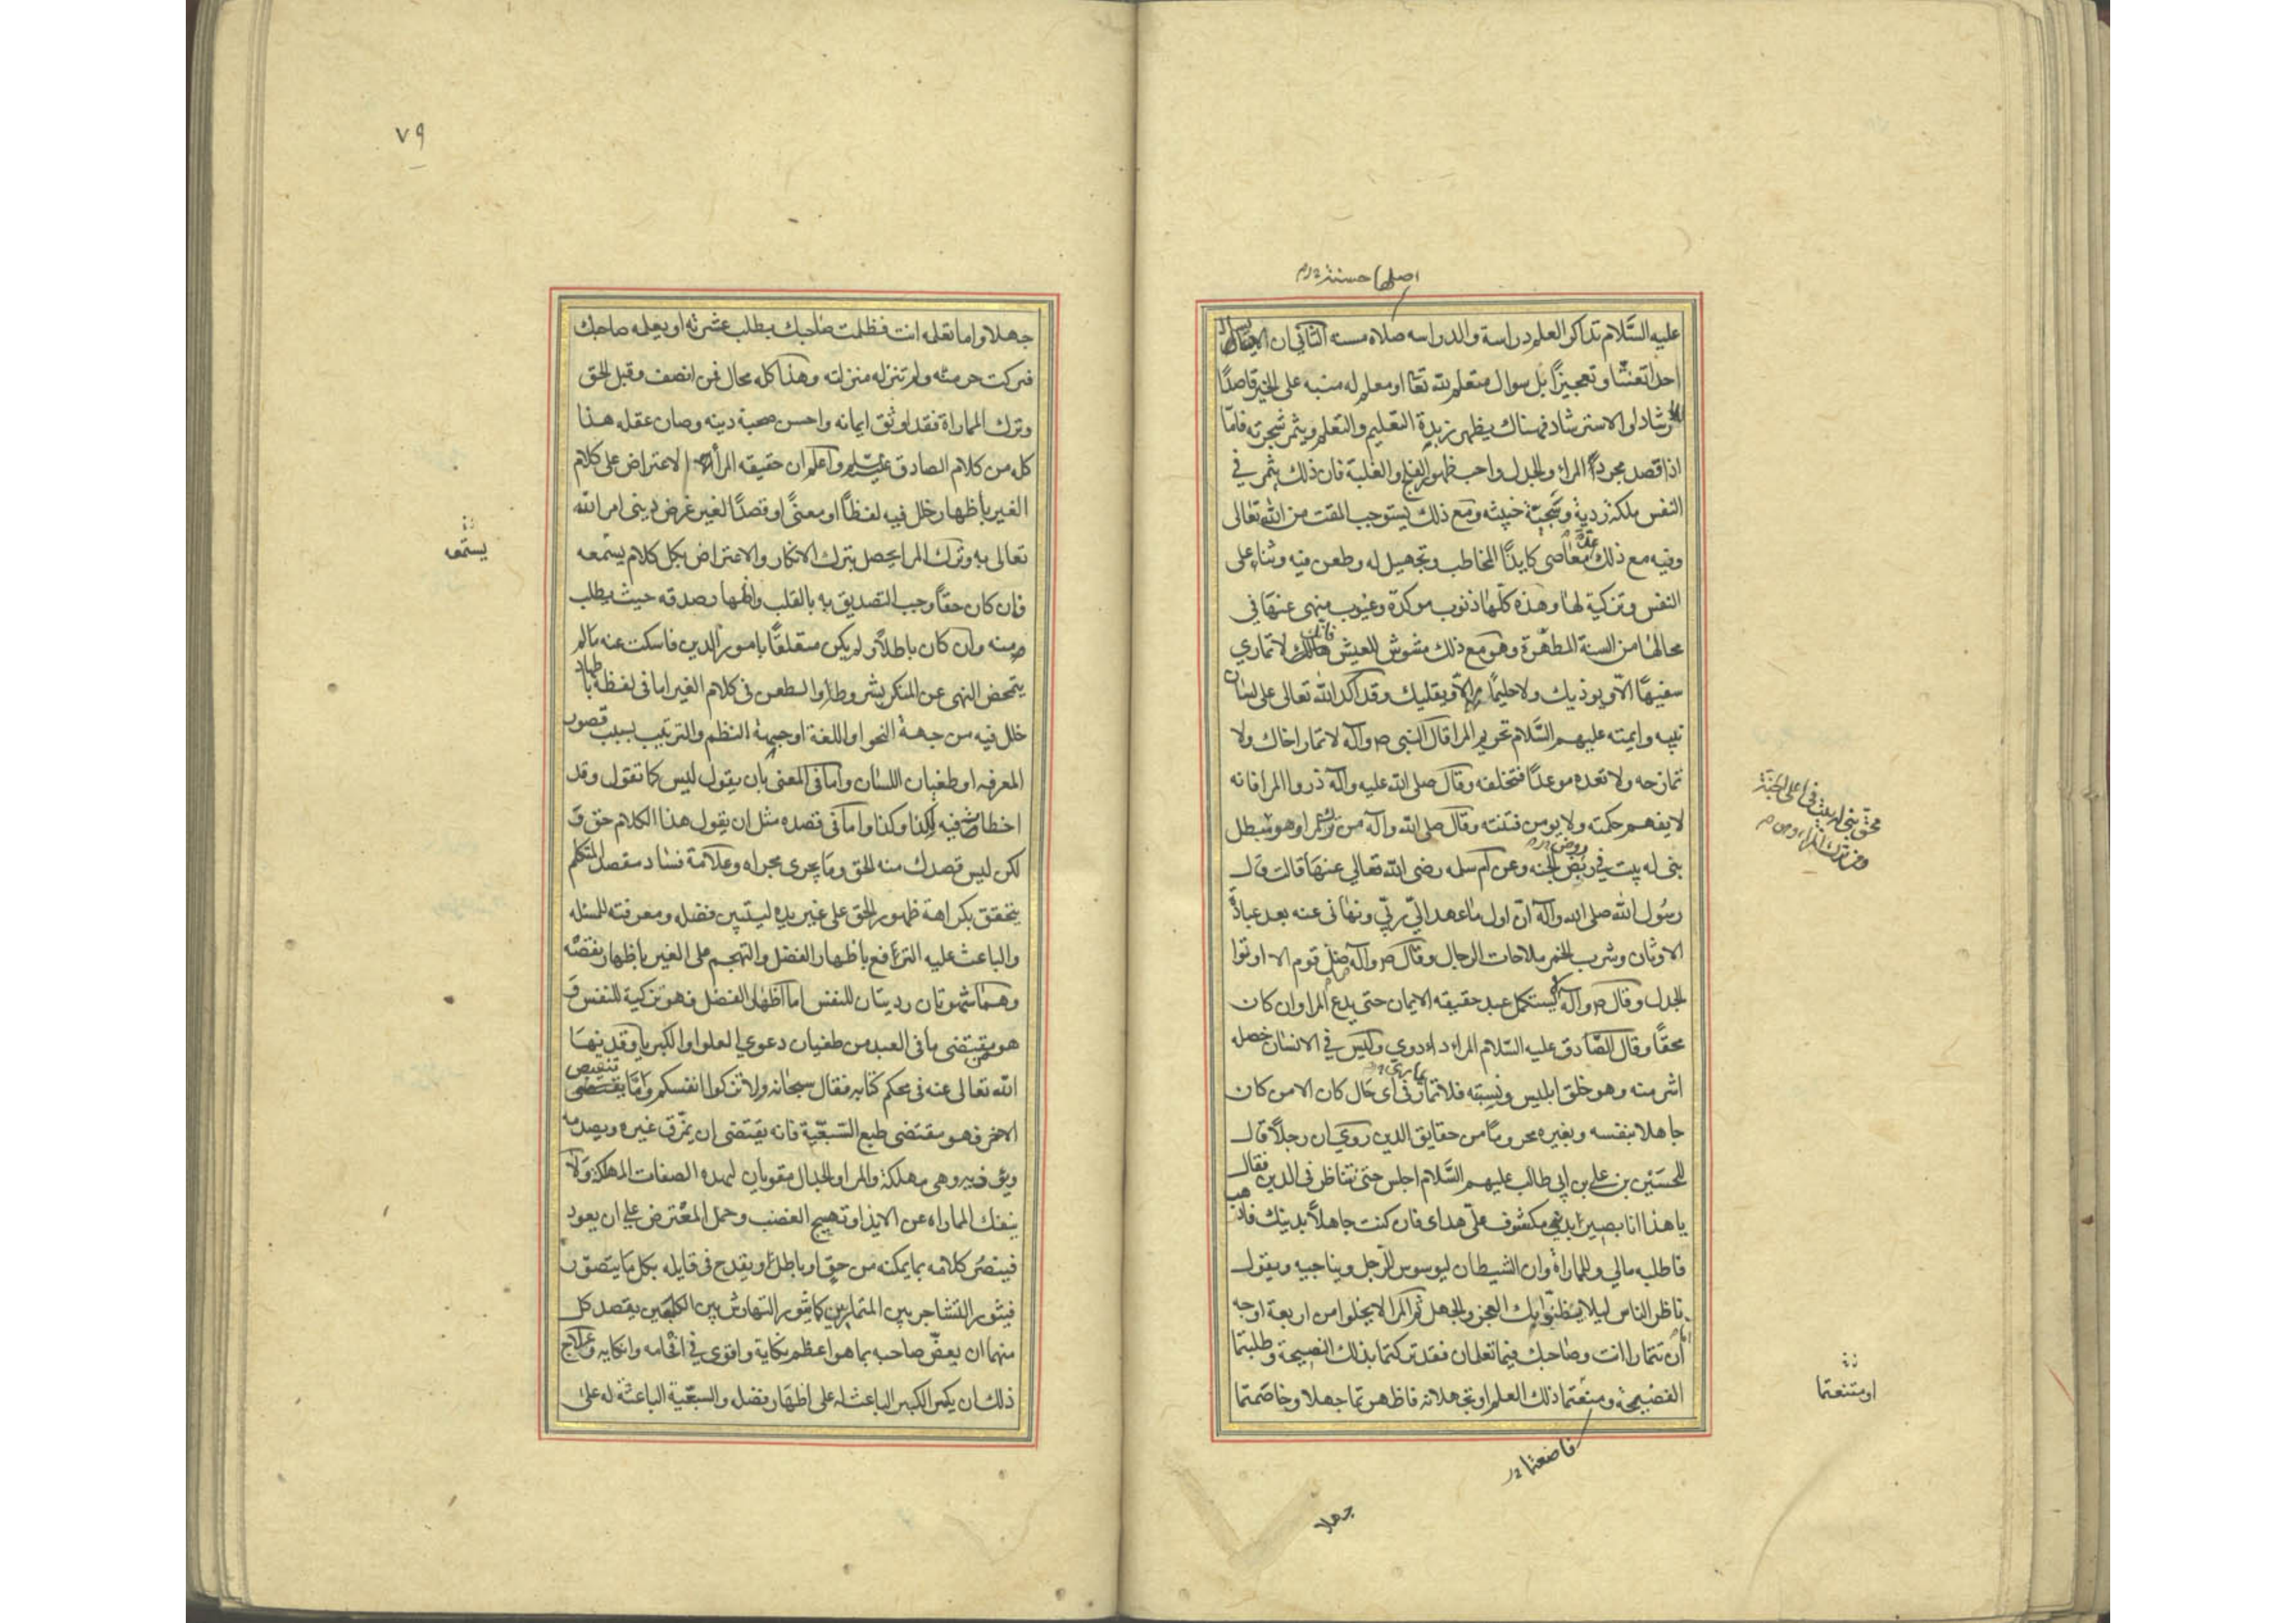 اصلها حسنة
عليه السَّلام تذاكر العلم دراسة والدراسه صلاه حسنه الثاني ان لا يسأل
احدا تعنتا وتعجيزاً بل سوال متعلم لله تعا او معلم له منبه على الخير قاصدًا
للارشاد او الاسترشاد فهناك يظهر زبدة التعليم والتعلم ويثمر شجرته فامّا
اذا قصد مجرد المراء والجدل واحب ظهور الفلج والغلبة فان ذلك يثمر في
النفس ملكة ردية وسجيّة خبيثه ومع ذلك يستوجب المقت من الله تعالى
وفيه مع ذلك عدّة معاصي كايذا المخاطب وتجهيل له وطعن فيه وثناء على
النفس وتزكية لها وهذه كلّها ذنوب موكدة وعيوب منهى عنها في
محالها من السنة المطهّرة وهو مع ذلك مشوش للعيش فانك لا تماري
سفيها الّا ويوذيك ولا حليمًا الّا ويقليك وقد اكد الله تعالى على لسان
نبيه وايمته عليهم السَّلام تحريم المرا قال النبى ص وآله لا تمار اخاك ولا
تمازحه ولا تعده موعدًا فتخلفه وقال صلى الله عليه وآله ذروا المرا فانه
لا يفهم حكمته ولا يومن فتنته وقال صلى الله وآله من ترك المرا وهو مبطل
بنى له بيت في ربض الجنه وعن ام سلمه رضى الله تعالي عنها قالت قال
رسُول الله صلى الله وآله انّ اول ما عهد اليّ ربّي ونهانى عنه بعد عبادة
الاوثان وشرب الخمر ملاحات الرجال وقال ص وآله ما ضل قوم الا اوتوا
الجدل وقال ص وآله لا يستكمل عبد حقيقه الايمان حتى يدع المرا وان كان
محقّا وقال الصّادق عليه السّلام المراء داء دوي وليس في الانسان خصله
اشر منه وهو خلق ابليس ونسبته فلا تمار في اى حال كان الا من كان
جاهلا بنفسه وبغيره محروما من حقايق الدين روي ان رجلاً قال
للحسَيْن بن علي بن ابي طالب عليهم السَّلام اجلس حتى نتناظر فى الدين فقال
يا هذا انا بصير بديني مكشوف علىّ هداى فان كنت جاهلاً بدينك فاذهب
فاطلبه مالي وللماراة وان الشيطان ليوسوس للرجل ويناجيه ويقول
ناظر الناس ليلا يظنّوا بك العجز والجهل ثم المرا لا يخلوا من اربعة اوجه
امّا ان تتمارا انت وصاحبك فيما تعلمان فقد تركتما بذلك النصيحة وطلبتما
الفضيحة ومنعتما ذلك العلم او تجهلانه فاظهرتما جهلا وخاصمتما
محقّ بنى له بيت في اعلى الجنّة
ومن ترك المراء وهو
او متنعتما
فاضعتما
جهلا
٧٩
جهلا واما تعلمه انت فظلمت صاحبك بطلب عثرته او يعلمه صاحبك
فتركت حرمته ولم تنزله منزلته وهذا كله محال فمن انصف وقبل الحق
وترك المماراة فقد اوثق ايمانه واحسن صحبة دينه وصان عقله هذا
كله من كلام الصادق عليه السلم واعلم ان حقيقه المراء الاعتراض على كلام
الغير باظهار خلل فيه لفظًا او معنًى او قصدًا لغير غرض دينى امر الله
تعالى به وترك المرا يحصل بترك الانكار والاعتراض بكل كلام يستمعه
فان كان حقا وجب التصديق به بالقلب واظهار صدقه حيث يطلب
منه وان كان باطلاً ولم يكن متعلقًا بامور الدين فاسكت عنه ما لم
يتمحض النهى عن المنكر بشروطه والطعن فى كلام الغير اما فى لفظه باظهار
خلل فيه من جهة النحو او اللغة او جهة النظم والترتيب بسبب قصور
المعرفه او طغيان اللسان واما فى المعنى بان يقول ليس كما تقول وقد
اخطات فيه لكذا وكذا واما فى قصده مثل ان يقول هذا الكلام حق و
لكن ليس قصدك منه الحق وما يجرى مجراه وعلامة فساد مقصد المتكلم
يتحقق بكراهة ظهور الحق على غير يده ليتبين فضله ومعرفته للمسئله
والباعث عليه الترافع باظهار الفضل والتهجم على الغير باظهار نقصه
وهما شهوتان رديتان للنفس اما اظهار الفضل فهو تزكية للنفس و
هو من مقتضى ما فى العبد من طغيان دعوي العلو والكبريا وقد نها
الله تعالى عنه فى محكم كتابه فقال سبحانه ولا تزكوا انفسكم وامّا تنقيص
الاخر فهو مقتضى طبع السّبعّية فانه يقتضى ان يمزّق غيره ويصدمه
ويوذيه وهى مهلكة والمرا والجدال مقويان لهذه الصفات المهلكة ولا
ينفك المماراه عن الايذا وتهييج الغضب وحمل المعْترض على ان يعود
فينصُر كلامه بما يمكنه من حق او باطل او يقدح فى قايله بكل ما يتصوّر
فيثور التشاجر بين المتمارين كما يثور التهارش بين الكلبين يقصد كل
منهما ان يعضّ صاحبه بما هو اعظم نكاية واقوى في افحامه وانكايه وعلاج
ذلك ان يكسر الكبر الباعث له على اظهار فضله والسبعّية الباعثة له على
يستمعه